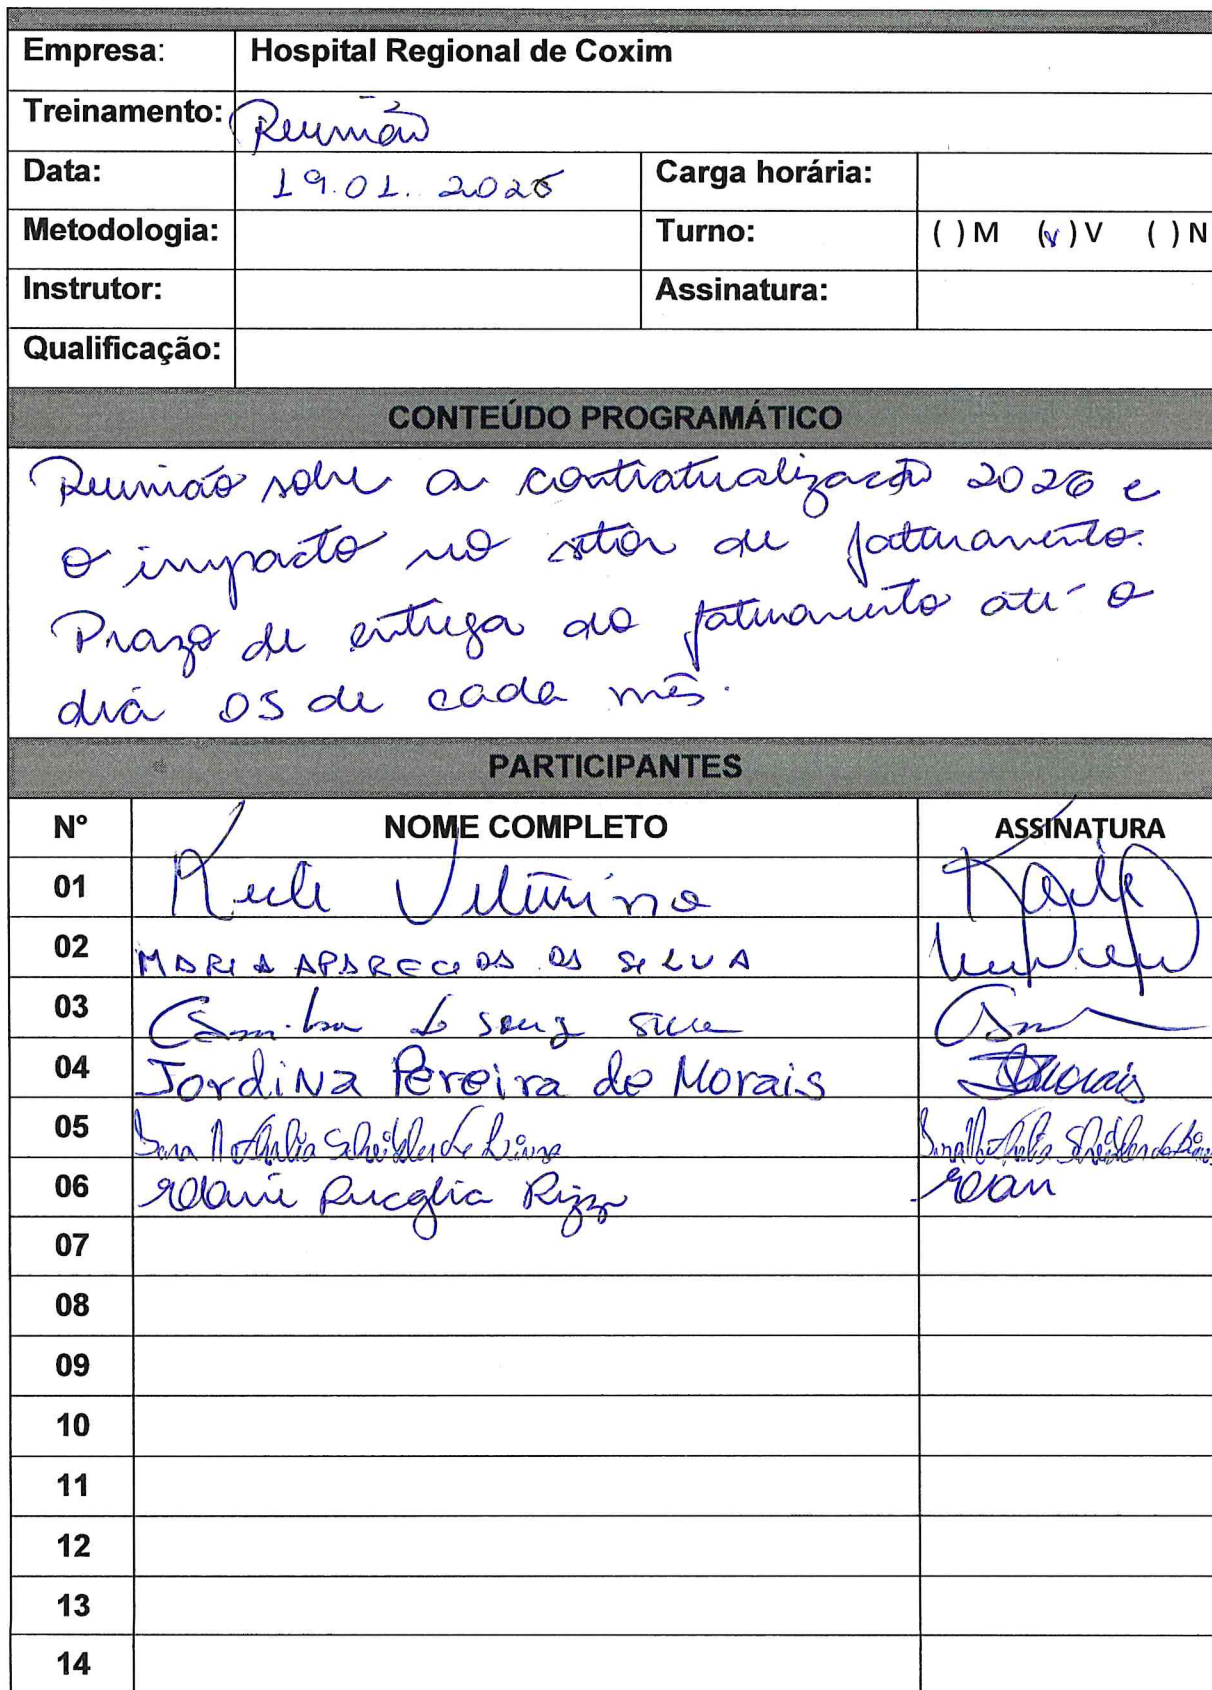 Empresa: Hospital Regional de Coxim
Treinamento: Reunião
Data: 19.01.2026 Carga horária:
Metodologia: Turno: ( ) M (v) V ( ) N
Instrutor: Assinatura:
Qualificação:
CONTEÚDO PROGRAMÁTICO
Reunião sobre a contratualização 2026 e
o impacto no setor de faturamento.
Prazo de entrega do faturamento até o
dia 05 de cada mês.
PARTICIPANTES
N° NOME COMPLETO ASSINATURA
01
02 MARIA APARECIDA DA SILVA
03 Camila de Souza
04 Jordina Pereira de Morais JMorais
05 Nathalia
06 Rizzo
07
08
09
10
11
12
13
14